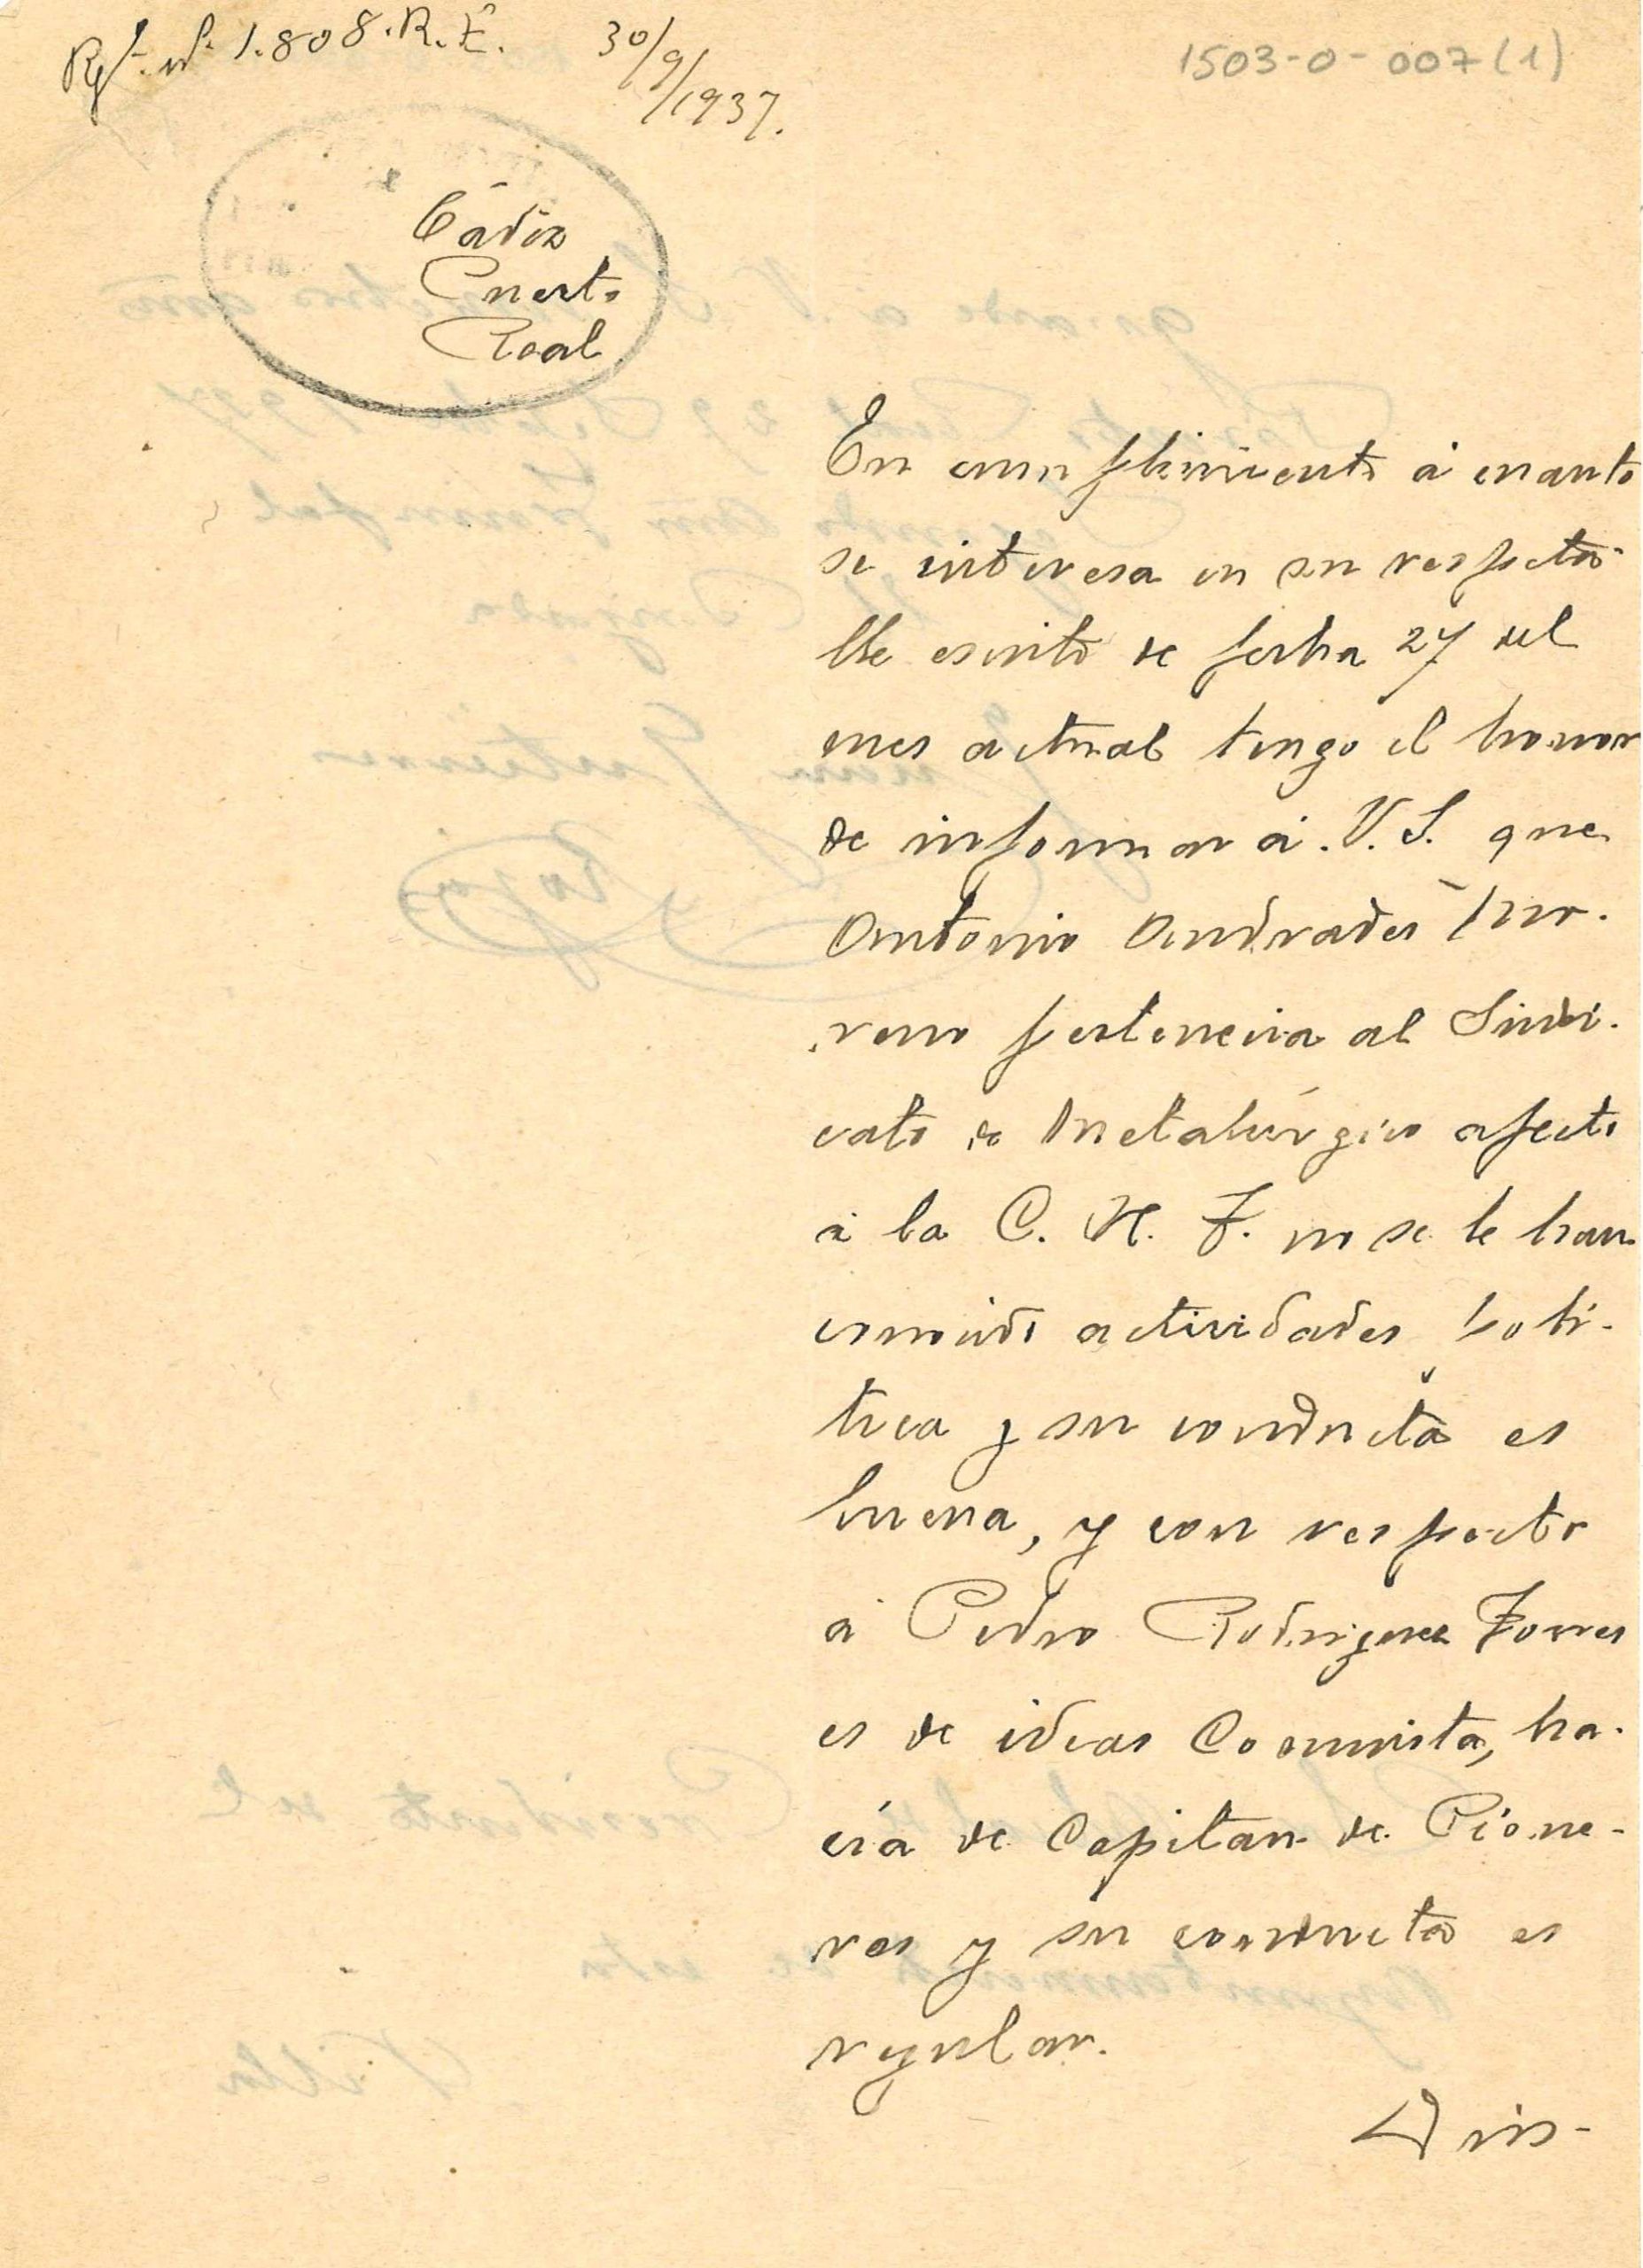 Rgt. nº. 1.808.R.E. 30/9/1937.
1503-0-007(1)
Cádiz
Puerto
Real
En cumplimiento á cuanto
se interesa en su respeta-
ble escrito de fecha 27 del
mes actual tengo el honor
de informar á. V. S. que
Antonio Andrades
pertenecia al Sindi-
cato de Metalúrgico afecto
á la C. N. T. no se le han
conocido actividades poli-
tica y su conducta es
buena, y con respecto
á Pedro Rodriguez Torres
es de ideas Comunista, ha-
cía de Capitan de Pione-
ros y su conducta es
regular.
Dios-